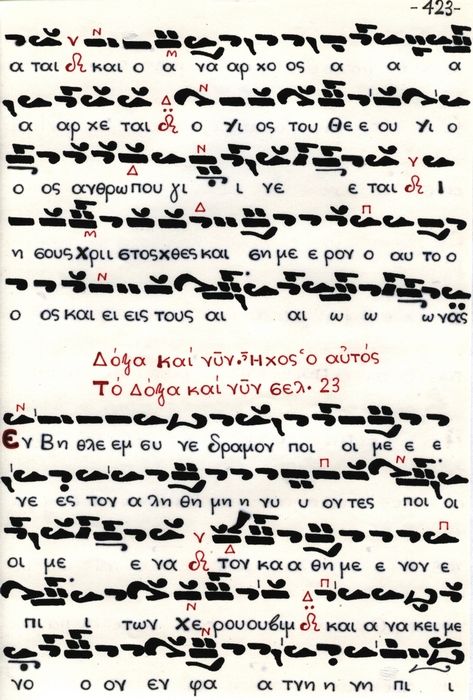 -423-
α ται και ο α να αρ χο ος α α α
α αρ χε ται ο γι ος του Θε ε ου γι ο
ο ος ανθρω που γι ι νε ε ται Ι
η σους Χρι ι στος χθες και ση με ε ρον ο αυ το ο
ο ος και ει εις τους αι αι ω ω ω νας
Δόξα καί νῦν. Ἦχος ὁ αὐτός
Τό Δόξα καί νῦν σελ. 23
Εν Βη θλε εμ συ νε δραμον ποι οι με ε ε
νε ες τον α λη θη μη νυ υ ον τες ποι οι
οι με ε να τον κα α θη με ε νον ε
πι ι των Χε ρου ου βιμ και α να κει με
νο ο ον εν φα α τνη νη πι ι